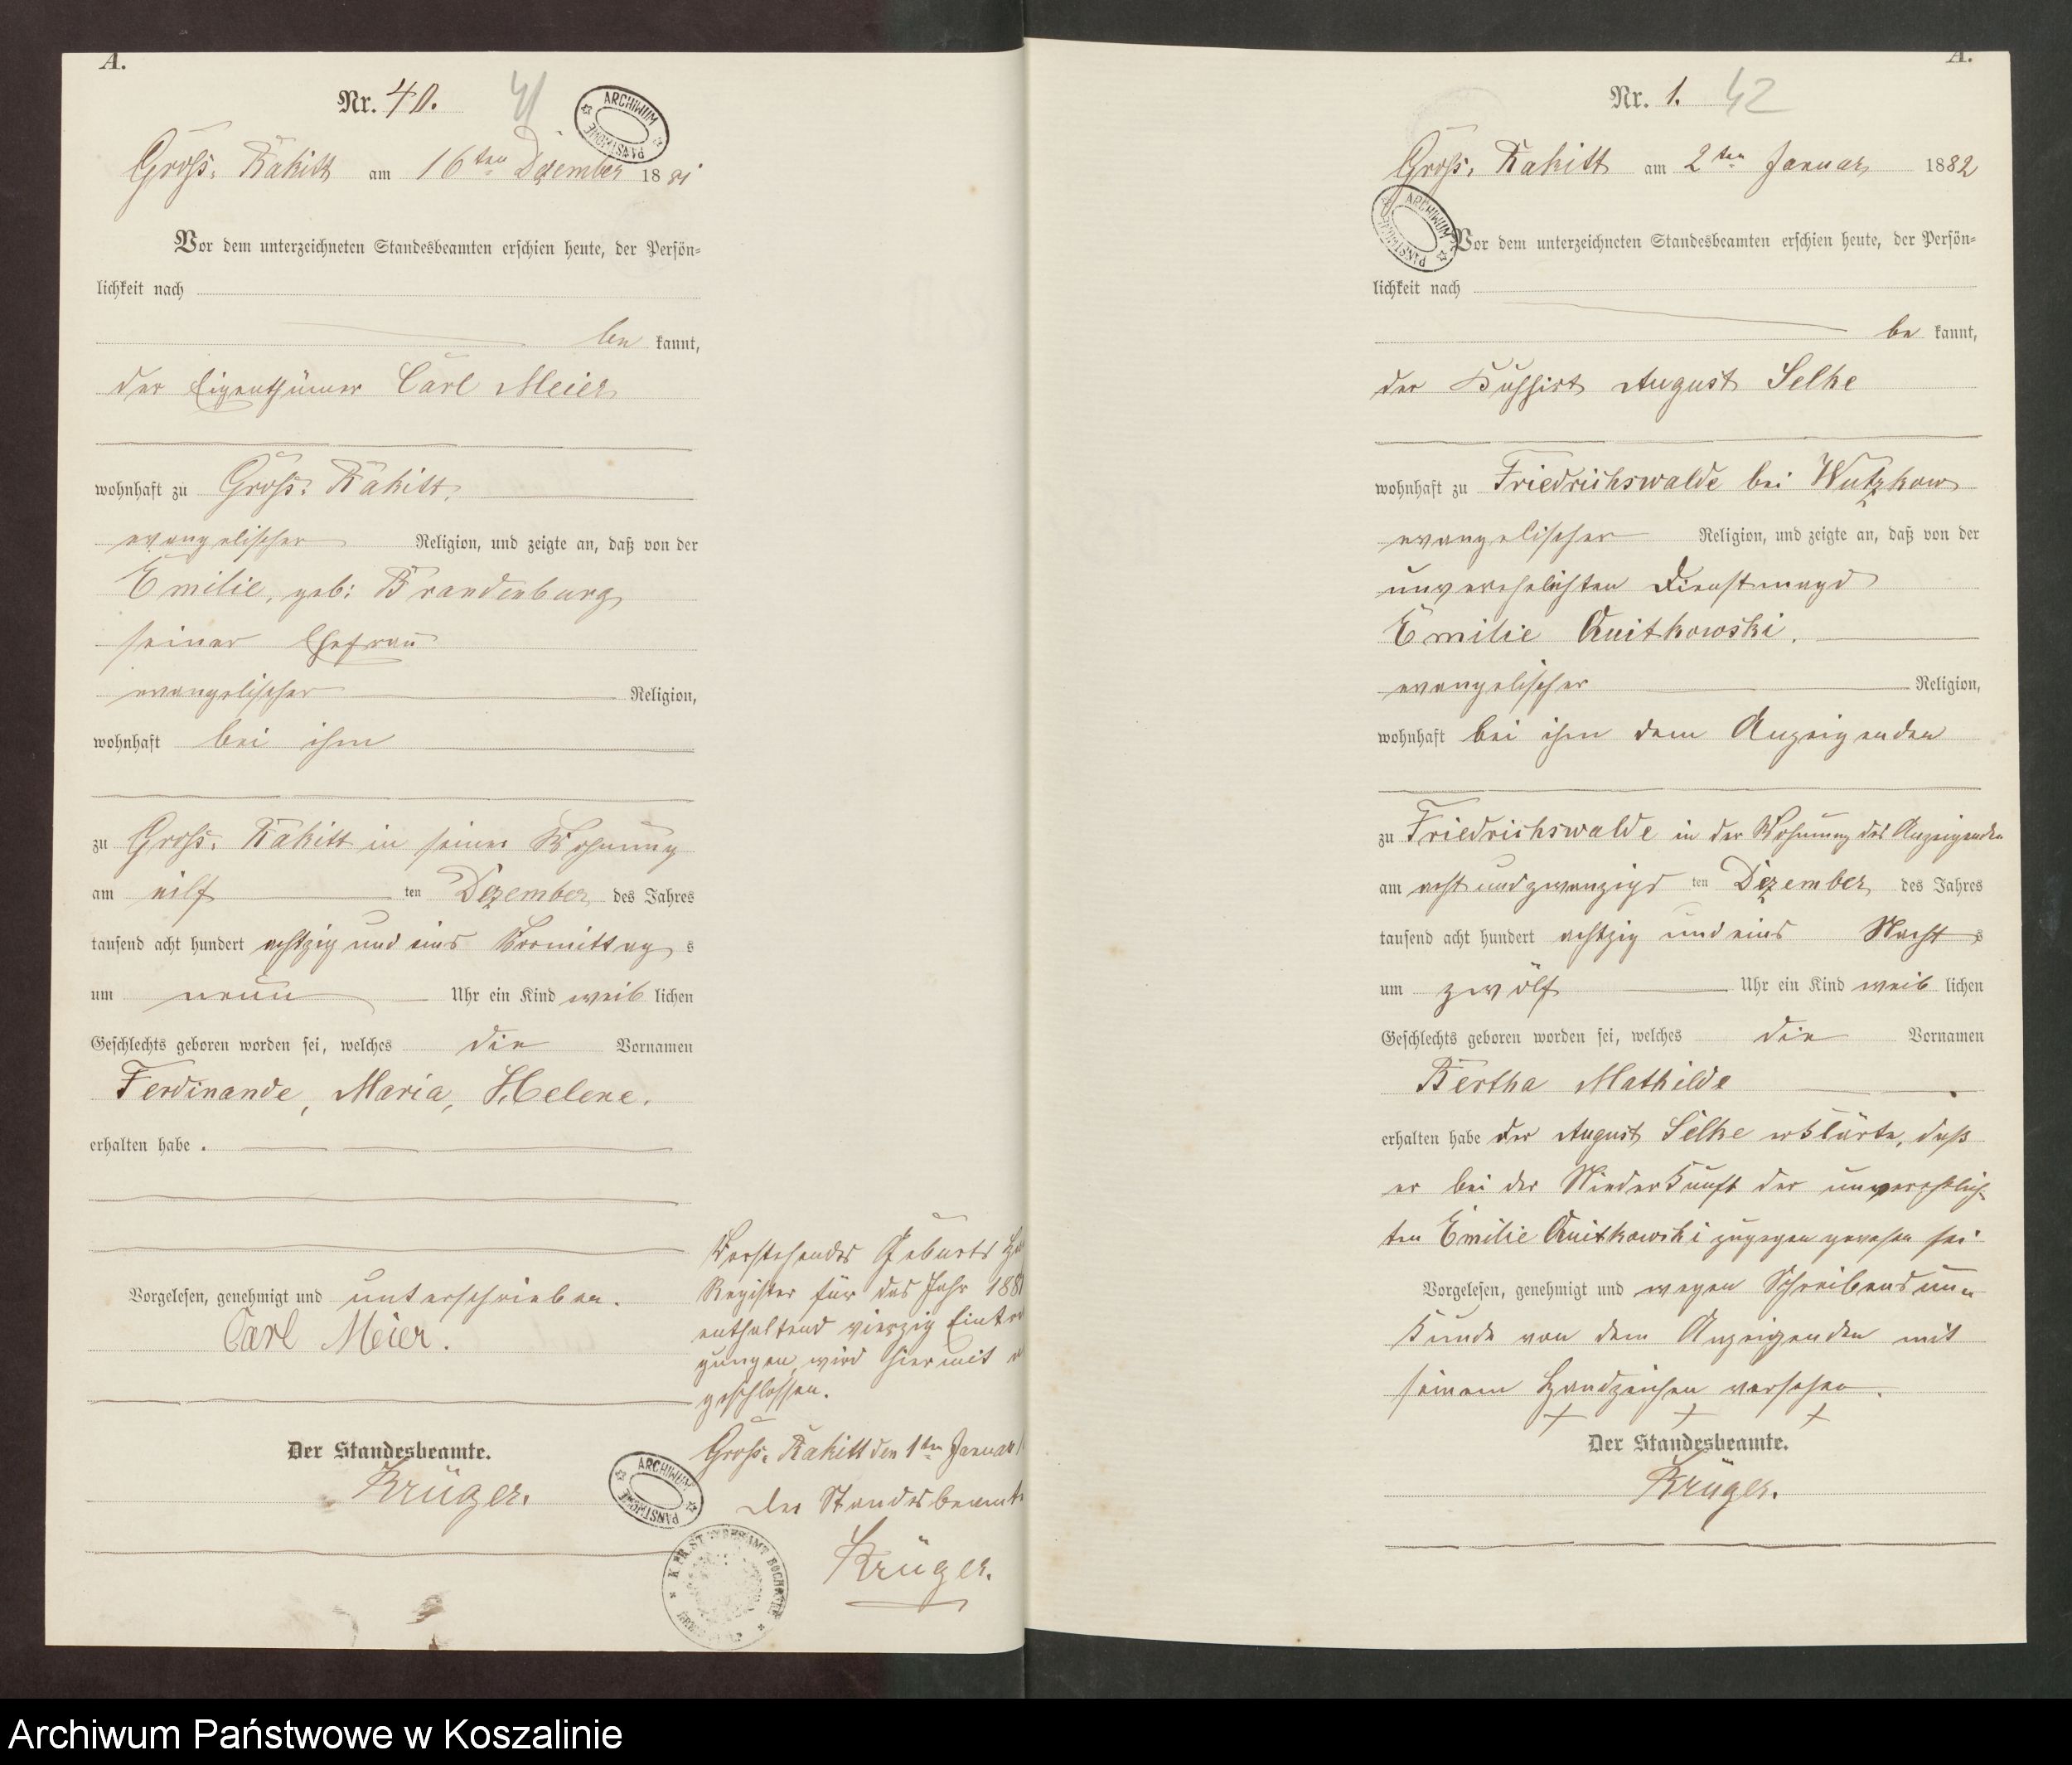 A.
Nr. 40.
41
ARCHIWUM PAŃSTWOWE
Gross. Rakitt am 16ten Dezember 1881
Vor dem unterzeichneten Standesbeamten erschien heute, der Persön-
lichkeit nach
be kannt,
der Eigenthümer Carl Meier
wohnhaft zu Gross. Rakitt.
evangelischer Religion, und zeigte an, daß von der
Emilie, geb: Brandenburg
seiner Ehefrau
evangelischer Religion,
wohnhaft bei ihm
zu Gross. Rakitt in seiner Wohnung
am eilf ten Dezember des Jahres
tausend acht hundert achtzig und eins Vormittag s
um neun Uhr ein Kind weib lichen
Geschlechts geboren worden sei, welches die Vornamen
Ferdinande, Maria, Helene.
erhalten habe .
Vorgelesen, genehmigt und unterschrieben.
Carl Meier.
Der Standesbeamte.
Krüger.
Vorstehendes Geburts
Register für das Jahr 1881
enthaltend vierzig Eintra
gungen, wird hiermit
geschlossen.
Gross. Rakitt den 1ten Januar
Der Standesbeamte
Krüger.
ARCHIWUM PAŃSTWOWE
A.
Nr. 1.
42
Gross. Rakitt am 2ten Januar 1882
ARCHIWUM PAŃSTWOWE
Vor dem unterzeichneten Standesbeamten erschien heute, der Persön-
lichkeit nach
be kannt,
der Kuhhirt August Selke
wohnhaft zu Friedrichswalde bei Wutzkow
evangelischer Religion, und zeigte an, daß von der
unverehelichten Dienstmagd
Emilie Quitkowski.
evangelischer Religion,
wohnhaft bei ihm dem Anzeigenden
zu Friedrichswalde in der Wohnung des Anzeigenden
am acht und zwanzigs ten Dezember des Jahres
tausend acht hundert achtzig und eins Nacht s
um zwölf Uhr ein Kind weib lichen
Geschlechts geboren worden sei, welches die Vornamen
Bertha Mathilde
erhalten habe der August Selke erklärte, daß
er bei der Niederkunft der unverehelich-
ten Emilie Quitkowski zugegen gewesen sei.
Vorgelesen, genehmigt und wegen Schreibensun-
kunde von dem Anzeigenden mit
seinem Handzeichen versehen.
+ + +
Der Standesbeamte.
Krüger.
Archiwum Państwowe w Koszalinie